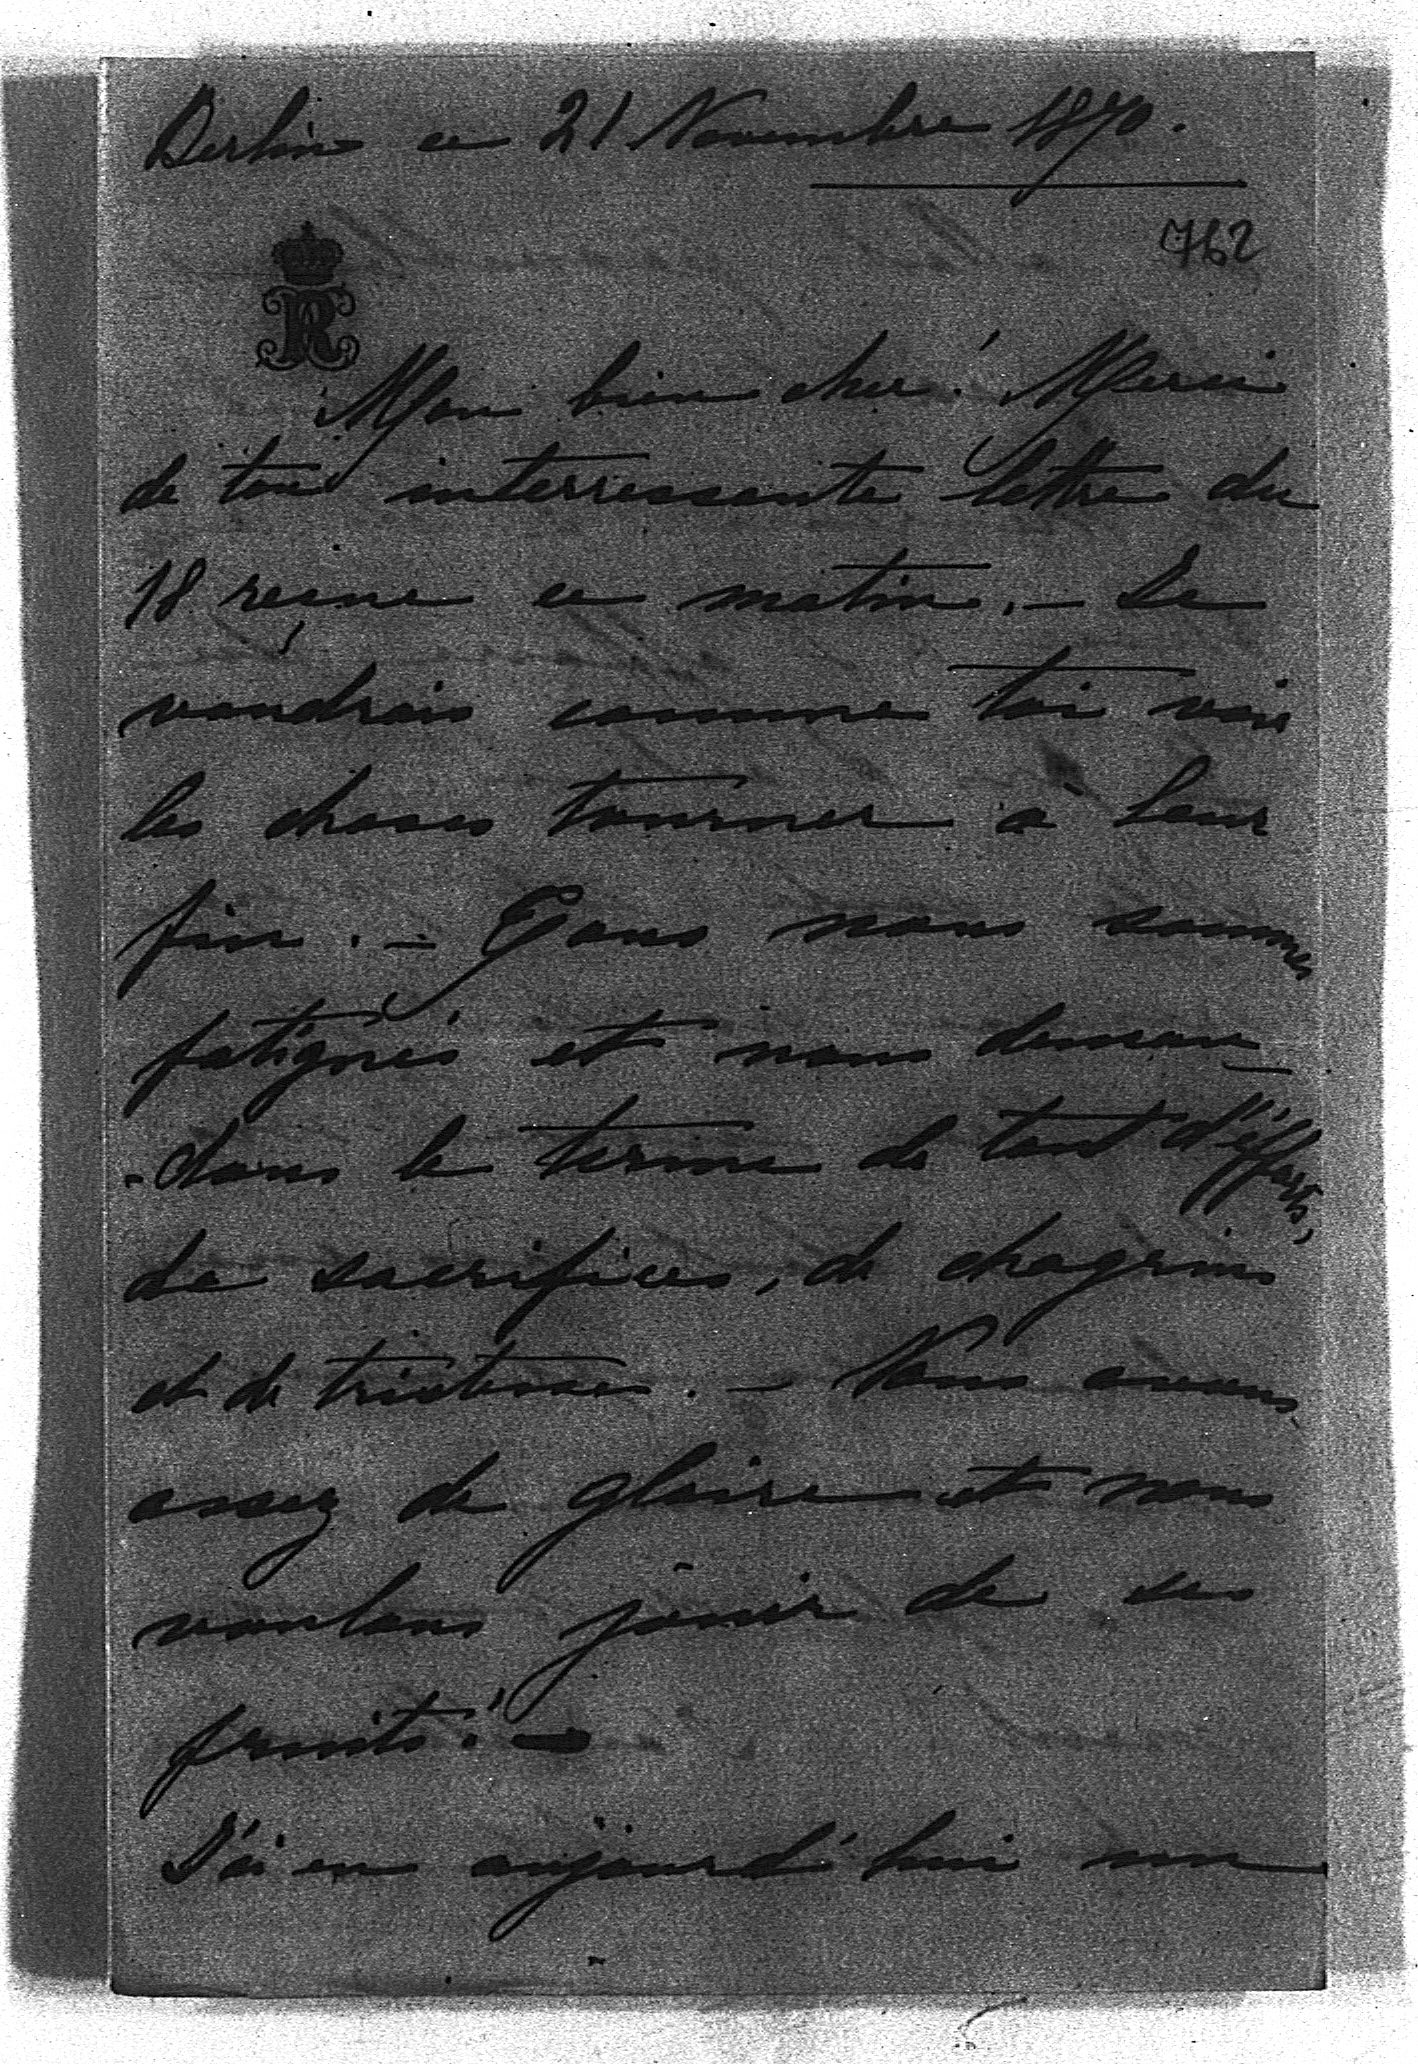 Berlin ce 21 Novembre 1870.
762
R
Mon bien cher! Merci
de ton interressente lettre du
18 reçue ce matin. — Je
voudrais comme toi voir
les choses tourner à leur
fin. — Tous nous sommes
fatigués et nous deman-
-dons le terme de tant d'éfforts,
de sacrifices, de chagrins
et de tristesses. — Nous avons
assez de gloire et nous
voulons jouir de ses
fruits! —
J'ai eu aujourd'hui une